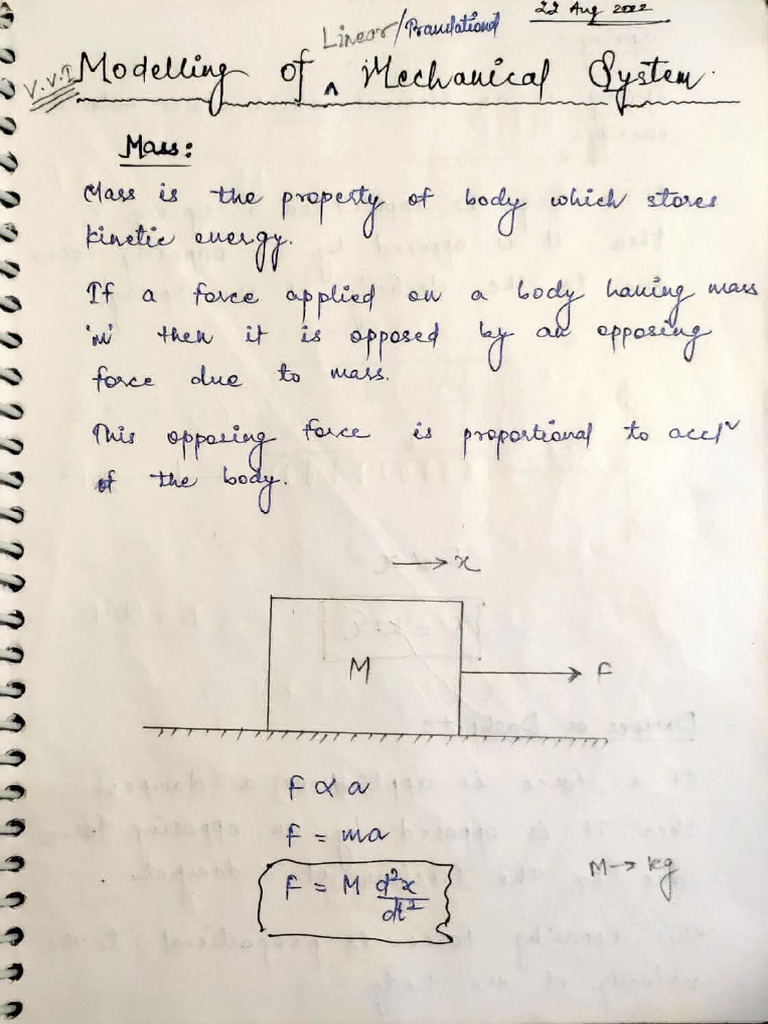 22 Aug 2022
Linear/Translational
V.V.I Modelling of ^ Mechanical System
Mass:
Mass is the property of body which stores
kinetic energy.
If a force applied on a body having mass
'M' then it is opposed by an opposing
force due to mass.
This opposing force is proportional to accl^n
of the body.
→ x
M
F
F ∝ a
F = ma
M → kg
F = M d²x/dt²